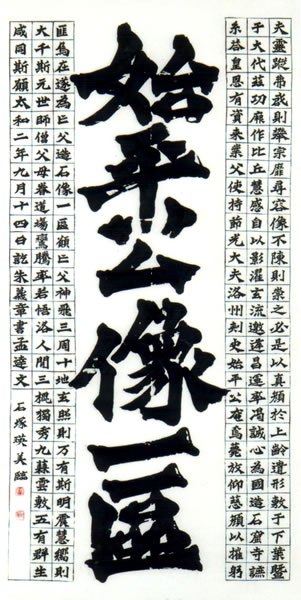 夫靈蹤則攀宗靡尋容像不陳則崇之必是以真顏於上齡遺形敷於下葉暨
于大代茲功厥作比丘慧感自以影濯玄流邀逢昌運率渴誠心為國造石窟寺
系荅皇恩有資来業父使持節光大夫洛州刾史始平公奄焉薨放仰慈顏以摧躬
始平公像一區
匪烏在遂為亡父造石像一區願亡父神飛三周十地玄照則万有斯明震慧嚮則
大千斯元世師僧父母眷道場鸞騰率若悟洛人間三槐獨秀九蕀雲敷五有群生
咸同斯願太和二年九月十四日訖朱義章書孟達文
石塚瑛美臨